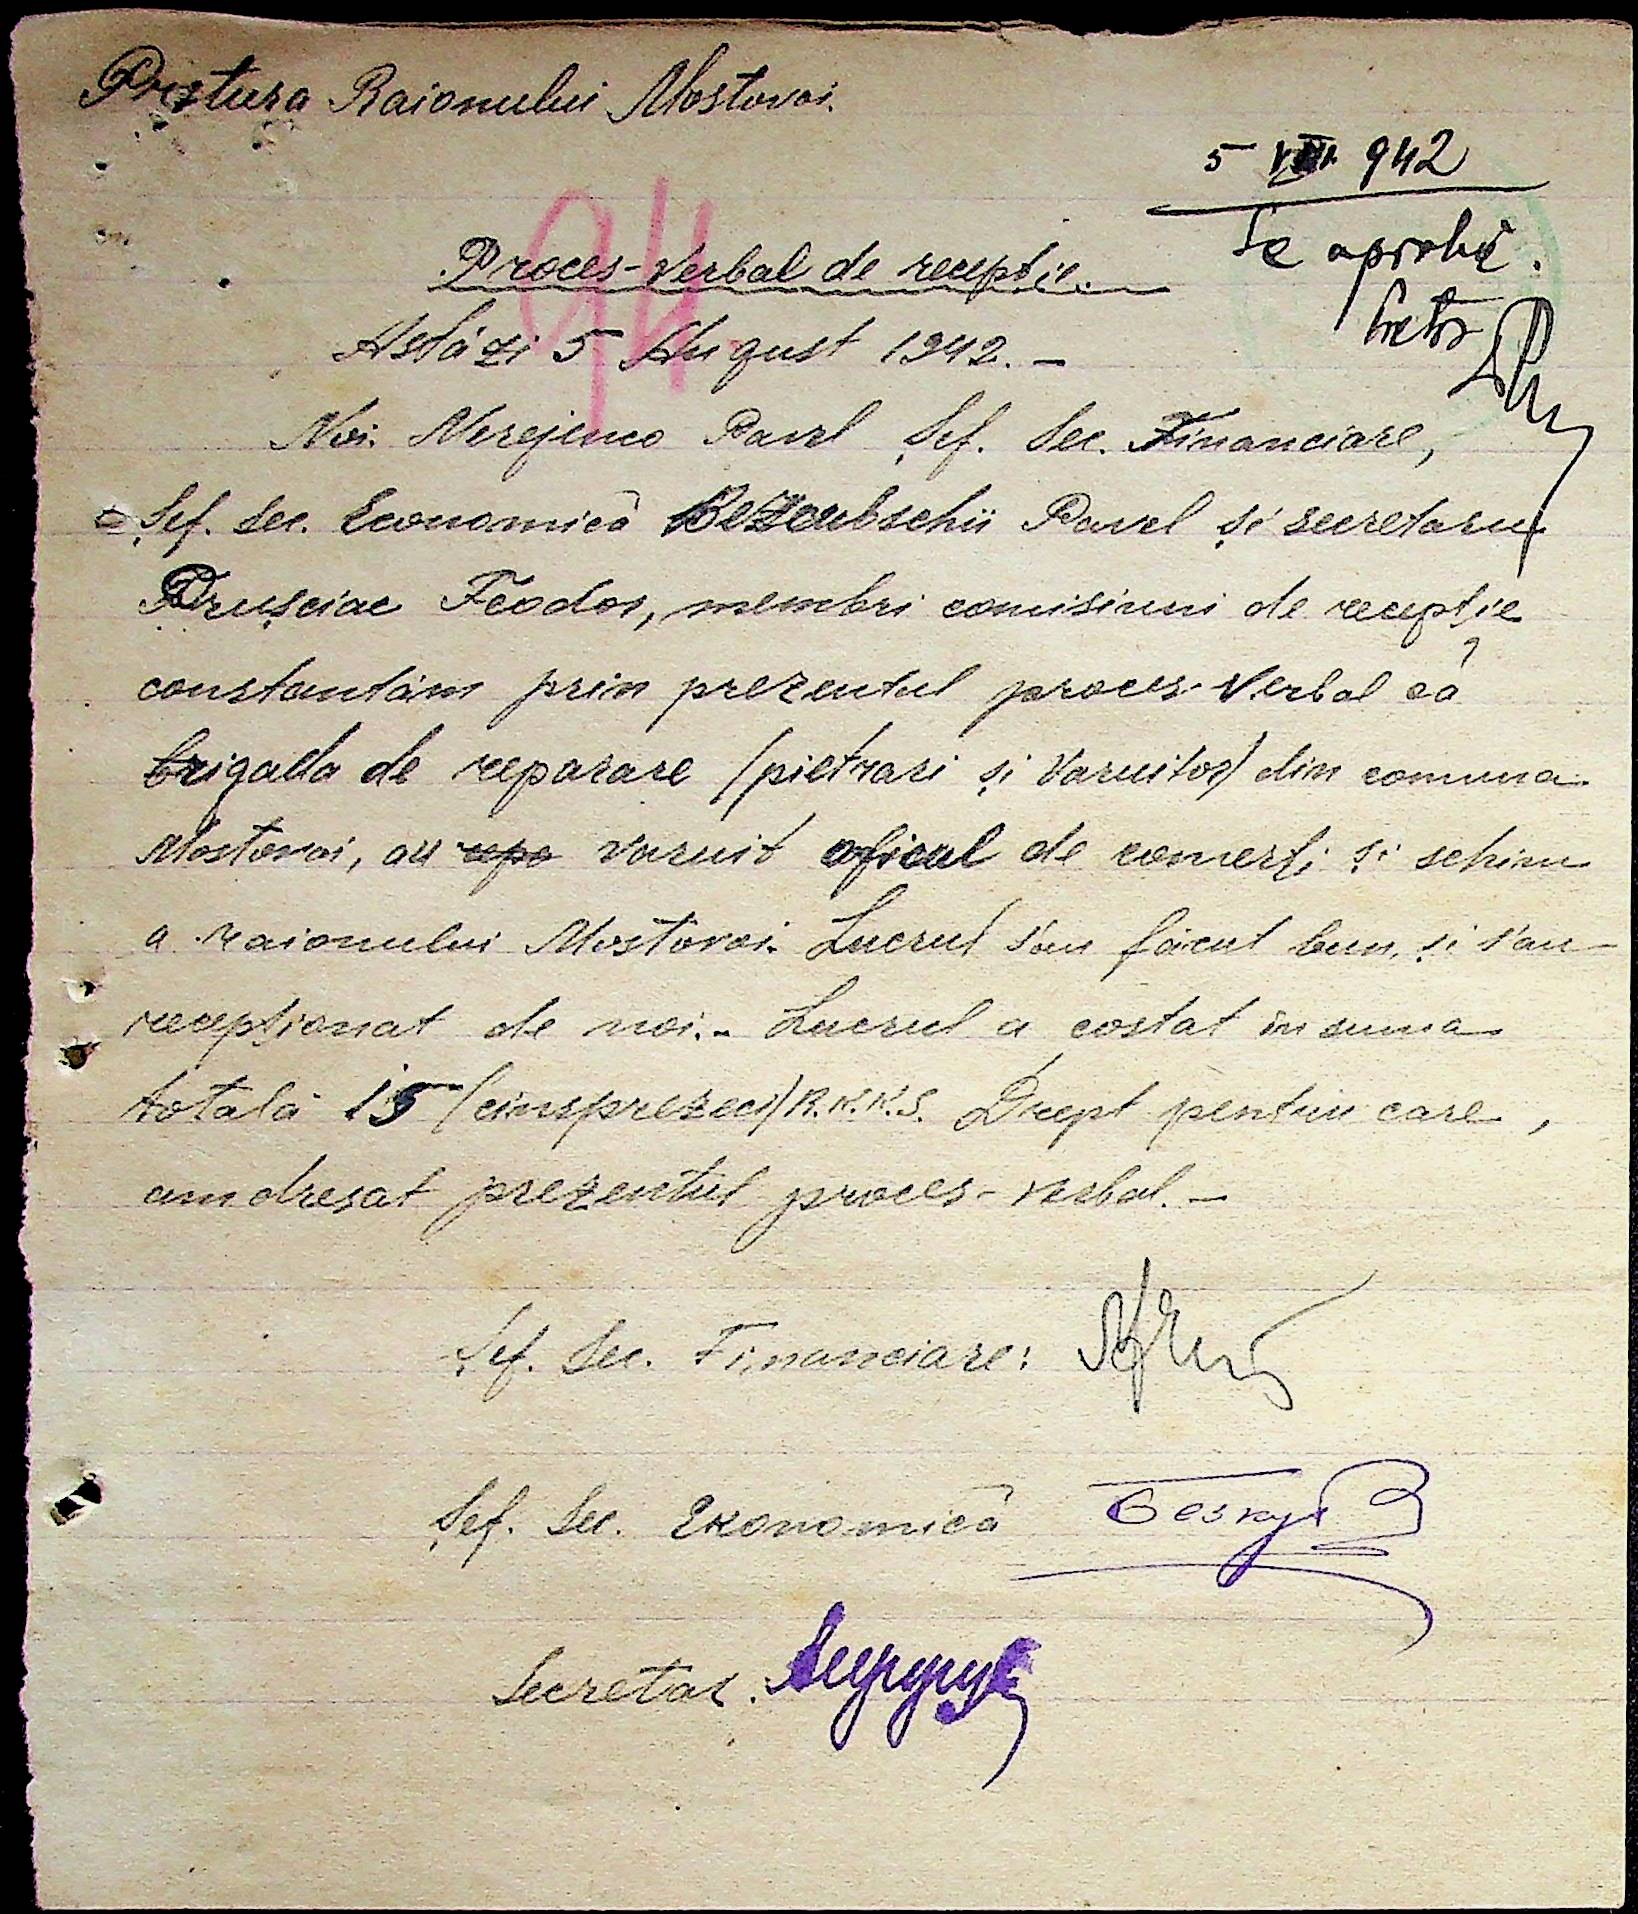 Pretura Raionului Mostovoi.
5 VIII 942
Se aprobă.
Pretor
94
Proces-Verbal de recepție.
Astăzi 5 August 1942. –
Noi. Nerejenco Pavel Șef. Sec. Financiare,
Șef. Sec. Economică Bezeubschii Pavel și secretaru
Prușciac Feodor, membri comisiuni de recepție
constantăm prin prezentul proces-Verbal că
brigada de reparare /pietrari și Varuitor/ din comuna
Mostovoi, au repa varuit oficul de comerți și schim
a raionului Mostovoi. Lucrul s'au făcut bun, și s'au
recepționat de noi.- Lucrul a costat în suma
totală 15 /cinsprezeci/ R.K.K.S. Drept pentru care,
am dresat prezentul proces-verbal. –
Șef. Sec. Financiare:
Șef. Sec. Ekonomică
Secretar.